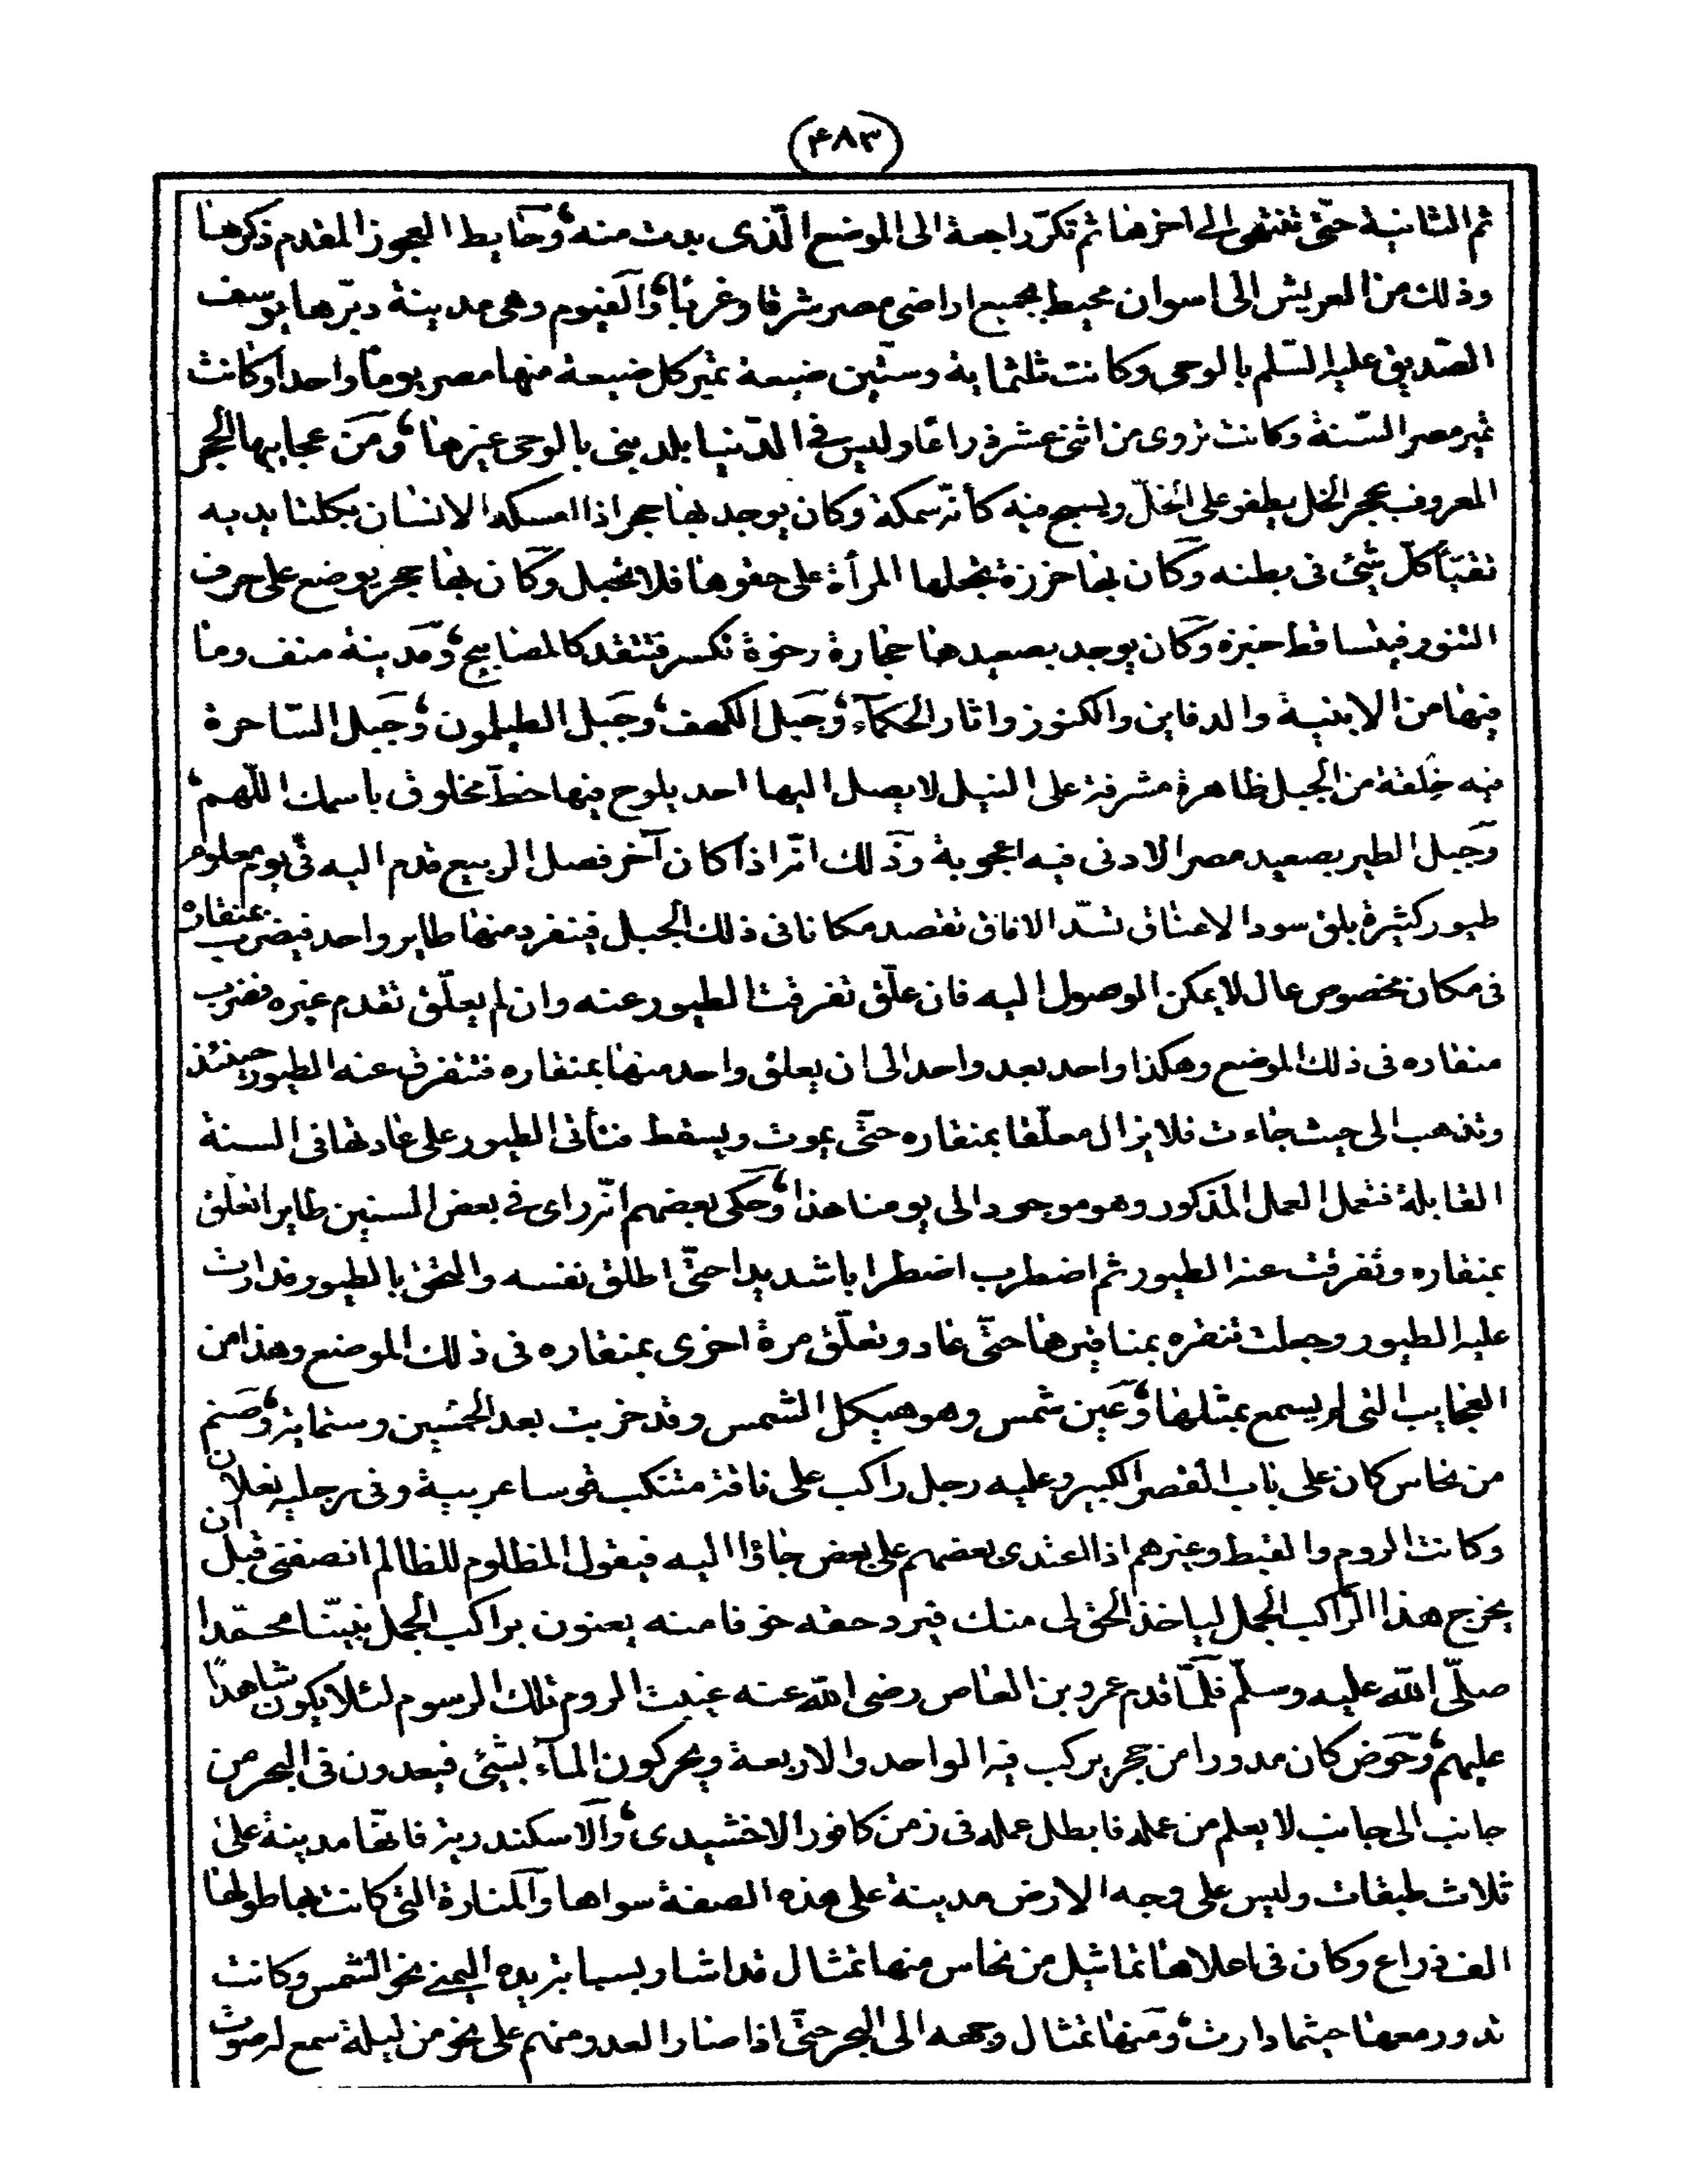 (۴۸۳)
ثم الثانية حتّى تنتهى الى اخرها ثم تكرّ راجعة الى الموضع الّذى بدت منه وحايط العجوز المقدم ذكرها
وذلك من العريش الى اسوان محيط بجميع اراضى مصر شرقا وغربا والفيوم وهى مدينة دبّرها يوسف
الصّديق عليه السّلم بالوحى وكانت ثلثماية وستّين ضيعة تمير كل ضيعة منها مصر يوما واحدا وكانت
تمير مصر السّنة وكانت تروى من اثنى عشر ذراعا وليس فى الدّنيا بلد بنى بالوحى غيرها ومن عجايبها الحجر
المعروف بحجر الخل يطفو على الخلّ ويسبح فيه كأنّه سمكة وكان يوجد بها حجر اذا امسكه الانسان بكلتا يديه
تقيّأ كلّ شئ فى بطنه وكان بها خرزة تجعلها المرأة على حقوها فلا تحبل وكان بها حجر يوضع على حرف
التنور فيتساقط خبزه وكان يوجد بصعيدها حجارة رخوة تكسر فتتقد كالمصابيح ومدينة منف وما
فيها من الابنية والدفاين والكنوز واثار الحكمآء وجبل الكهف وجبل الطيلمون وجبل السّاحرة
فيه خلقة من الجبل ظاهرة مشرفة على النيل لا يصل اليها احد يلوح فيها خطّ مخلوق باسمك اللّهم
وجبل الطير بصعيد مصر الادنى فيه اعجوبة وذلك انّه اذا كان آخر فصل الربيع قدم اليه فى يوم معلوم
طيور كثيرة بلق سود الاعناق تسدّ الافاق تقصد مكانا فى ذلك الجبل فينفرد منها طاير واحد فيضرب بمنقاره
فى مكان مخصوص عال لا يمكن الوصول اليه فان علّق تفرقت الطيور عنه وان لم يعلّق تقدم غيره فضرب
منقاره فى ذلك الموضع وهكذا واحد بعد واحد الى ان يعلق واحد منها بمنقاره فتتفرق عنه الطيور حينئذ
وتذهب الى حيث جاءت فلا يزال معلّقا بمنقاره حتّى يموت ويسقط فتأتى الطيور على عادتها فى السنة
القابلة فتعمل العمل المذكور وهو موجود الى يومنا هذا وحكى بعضهم انّه راى فى بعض السنين طايرا تعلّق
بمنقاره وتفرقت عنه الطيور ثم اضطرب اضطرابا شديدا حتّى اطلق نفسه والتحق بالطيور فدارت
عليه الطيور وجعلت تنقره بمناقيرها حتّى عاد وتعلّق مرة اخرى بمنقاره فى ذلك الموضع وهذا من
العجايب التى لم يسمع بمثلها وعين شمس وهو هيكل الشمس وقد خربت بعد الخمسين وستماية وصنم
من نحاس كان على باب القصر الكبير وعليه رجل راكب على ناقة متنكب قوسا عربية وفى رجليه نعلان
وكانت الروم والقبط وغيرهم اذا اعتدى بعضهم على بعض جاؤا اليه فيقول المظلوم للظالم انصفنى قبل ان
يخرج هذا الراكب الجمل لياخذ الحق لى منك فيرد حقه خوفا منه يعنون براكب الجمل نبيّنا محمّدا
صلّى الله عليه وسلّم فلمّا قدم عمرو بن العاص رضى الله عنه غيبت الروم تلك الرسوم لئلا يكون شاهدا
عليهم وحوض كان مدورا من حجر يركب فيه الواحد والاربعة ويحركون المآء بشئ فيعدون فى البحر من
جانب الى جانب لا يعلم من عمله فابطل عمله فى زمن كافور الاخشيدى والاسكندرية فانها مدينة على
ثلاث طبقات وليس على وجه الارض مدينة على هذه الصفة سواها والمنارة التى كانت بها طولها
الف ذراع وكان فى اعلاها تماثيل من نحاس منها تمثال قد اشار بسبابة يده اليمنى نحو الشمس وكانت
تدور معها حيثما دارت ومنها تمثال وجهه الى البحر حتّى اذا صار العدو منهم على نحو من ليلة سمع له صوت